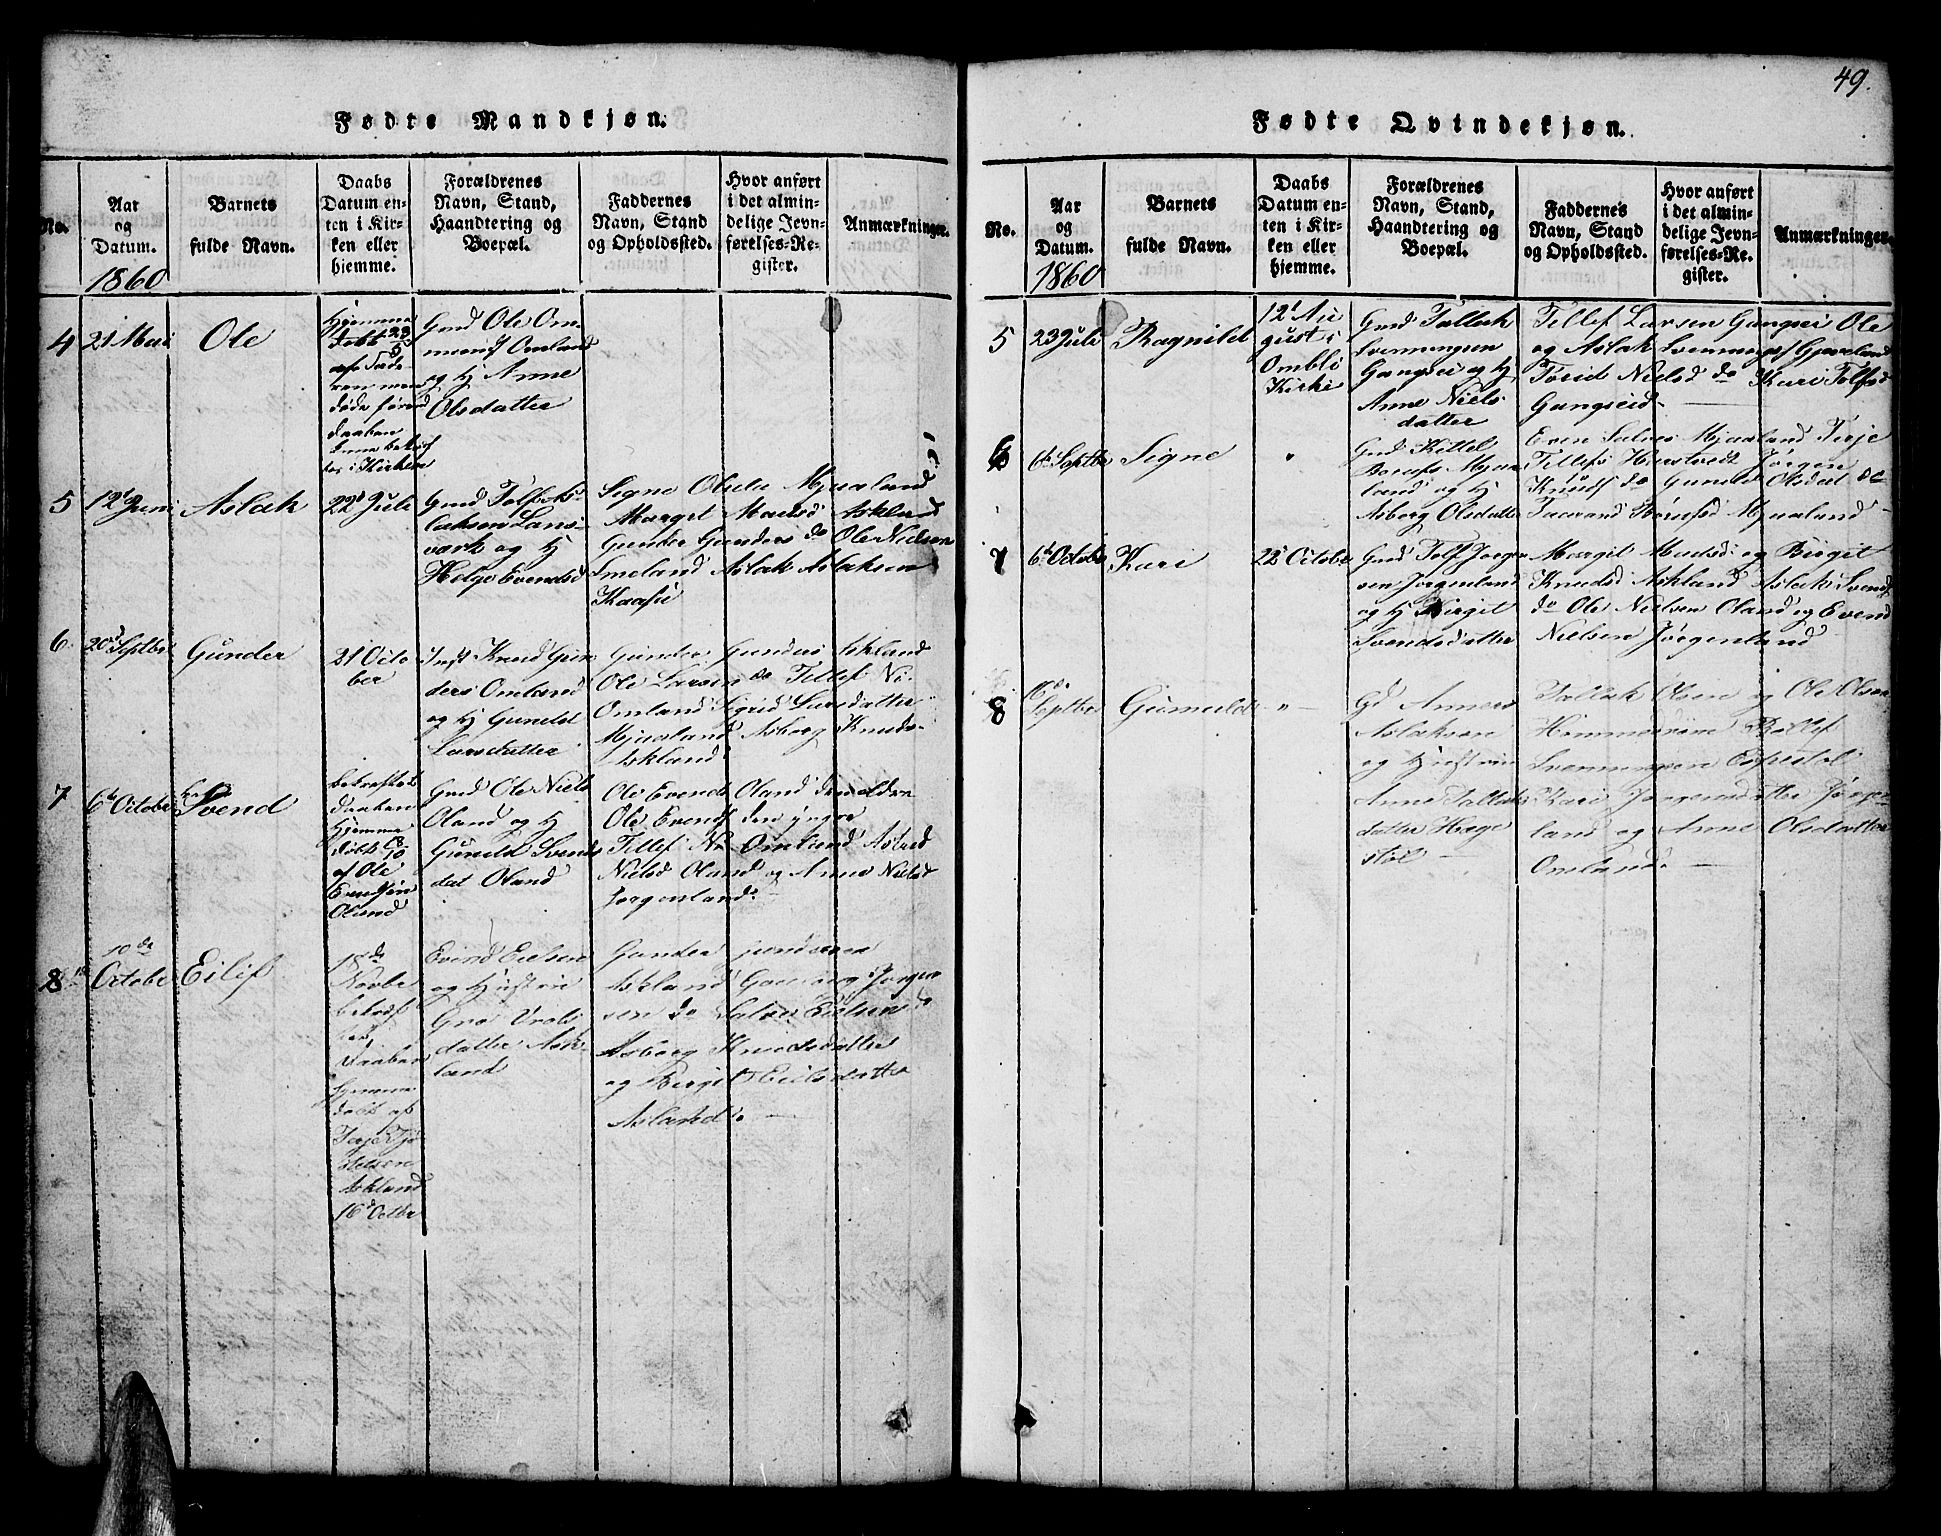 49.
Fødte Mandkjøn.
No.
Aar
og
Datum.
1860
Barnets
fulde Navn.
Daabs
Datum en-
ten i Kir-
ken eller
hjemme.
Forældrenes
Navn, Stand,
Haandtering og
Boepæl.
Faddernes
Navn, Stand
og Opholdssted.
Hvor anført
i det almin-
delige Jevn-
førelses-Re-
gister.
Anmærkninger.
4
21 Mai
Ole
Hjemme
døbt 23/5
døde førend
daaben
i Kirken
Gmd Ole Om-
Omland
og Hj Anne
Olsdatter
5
12 Juni
Aslak
22d Juli
Gmd Tolf As-
laksen Lans-
værk og Hj
Helge Evendsd
Signe Olsdtr Mjualand
Marget Madsd Askland
Gunder Gunders do Ole Nielsen
Imeland Aslak Aslaksen
Kaasie
6.
20d Septbr
Gunder
21 Octo
ber
Inst Knud Gun
ders Omland
og Hj Gunild
Larsdatter
Gunder Gunders Askland
Ole Larsen do Tellef Ni.
Omland Sigrid Larsdatter
Mjualand Asborg Knuds.
Askland
7
6d Octobr
Svend
bekræftet
daaben
hjemme
døbt 13/10
af Ole
Evendsen
Oland
Gmd Ole Niels
Oland og Hj
Gunild Svends
dat Oland
Ole Evends Oland den eldre
Ole Evends den yngre
Tellef Ni Omland Aslaug
Nielsd Oland og Anne Nielsd
Jorgenland.
8
10de
Octobr
Eilif
18de
Novbr
bekræf
tet
Daaben
hjemme
døbt af
Terje Tjø
stelsen
Askland
16d Octbr
Evind Eielsen
og Hustrue
Gro Vrols
datter Ask-
land
Gunder Gundersen
Askland Gunborg Jorgen
sen do Salve Eielsen do
Asborg Knudsdatter
og Birgit Eielsdatter
Asland.
Fødte Qvindekjøn.
No.
Aar
og
Datum.
1860
Barnets
fulde Navn.
Daabs
Datum en-
ten i Kir-
ken eller
hjemme.
Forældrenes
Navn, Stand,
Haandtering og
Boepæl.
Faddernes
Navn, Stand
og Opholdssted.
Hvor anført
i det almin-
delige Jevn-
førelses-Re-
gister.
Anmærkninger.
5
23 Juli
Ragnild
12' Au
gust i
Ombli
Kirke
Gmd Tallak
Svenningsen
Gangsei og Hj
Anne Niels
datter
Tellef Larsen Gangsei Ole
og Aslak Svennings Gjeveland
Torid Nielsd do Kari Tolfsd
Gangseid
6
6d Septbr
Signe
"
Gmd Kittel
land og Hj
Asborg Olsdatter
Even Salves Mjualand Terje
Tellefs Harstvedt Jørgen
Knuds do Gunild Olsdat do
Mjualand
7
6d Octobr
Kari
22d Octobr
Gmd Tolf Jorgen
sen Jorgenland
og Hj Birgit
Svendsdatter
Margit Madsd. og Birgit
Knudsd Askland Aslak Svends
do Ole Nielsen Oland og Evend
Nielsen Jørgenland
8
6de
Septbr
Gunild
"
Gd Anners
Aslaksen
og Hustrue
Anne Tallaks
datter Hege
støl
Tallak Olsen og Ole Olsen
Svenningsen Espestøl
Kari Jorgensdatter Jorgen
land og Anne Olsdatter
Omland.